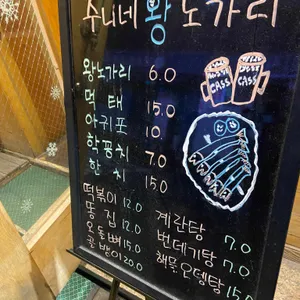 수니네 왕 노가리
CASS CASS
왕노가리 6.0
먹태 15.0
아귀포 10.
학꽁치 7.0
한치 15.0
떡볶이 12.0
똥집 12.0
오돌뼈 15.0
골뱅이 20.0
계란탕 7.0
번데기탕 7.0
해물오뎅탕 15.0